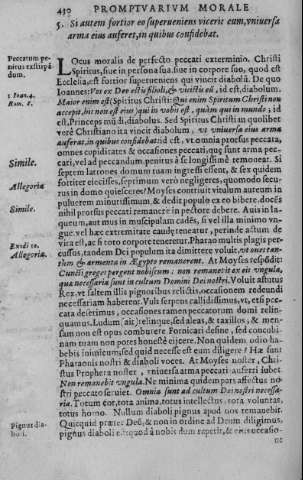 430 PROMPTVARIVM MORALE
5. Si autem fortior eo superueniens vicerit eum, vniuersa
arma eius auferet, in quibus confidebat.
Peccatum pe-
nitus exstirpā-
dum.
LOcus moralis de perfecto peccati exterminio. Christi
Spiritus, siue in persona sua, siue in corpore suo, quod est
Ecclesia, est fortior superueniens qui vincit diabolū. De quo
1 Ioan. 4.
Ioannes: Vos ex Deo estis filioli, & vicistis eū, id est, diabolum.
Rom. 8.
Maior enim est (Spiritus Christi: Qui enim Spiritum Christi non
accepit, hic non est eius) qui in vobis est, quàm qui in mundo, id
est, Princeps mūdi, diabolus. Sed Spiritus Christi in quolibet
verè Christiano ita vincit diabolum, vt vniuersa eius arma
auferat, in quibus confidebat: id est, vt omnia prorsus peccata,
omnes cupiditates & occasiones peccati, quę sunt arma pec-
cati, vel ad peccandum, penitus à se longissimè remoueat. Si
Simile.
septem latrones domum tuam ingressi essent, & sex quidem
fortiter eiecisses, septimum verò negligeres, quomodo secu-
Allegoria
rus in domo quiesceres? Moyses contriuit vitulum aureum in
puluerem minutissimum, & dedit populo ex eo bibere, docēs
nihil prorsus peccati remanere in pectore debere. Auis in la-
Simile.
queum, aut mus in muscipulam cadēs, si vel illa minimo vn-
gue, vel hæc extremitate caudę teneatur, perinde actum de
vita est, ac si toto corpore teneretur. Pharao multis plagis per-
Exodi 10.
cussus, tandem Dei populum ita dimittere voluit, vt oues tan-
Allegoria.
tum & armenta in Ægypto remanerent. At Moyses respōdit
Cuncti greges pergent nobiscum: non remanebit ex eis vngula,
quæ necessaria sunt in cultum Domini Dei nostri. Voluit astutus
Rex, vt saltem illis pignoribus relictis, occasionem redeundi
necessariam haberent. Vult serpens callidissimus, vt, etsi pec-
cata deserimus, occasiones tamen peccatorum domi relin-
quamus. Ludum, ait, relinque, sed aleas, & taxillos, & men-
sam non est opus comburere. Fornicari desine, sed concubi-
nam tuam non potes honestè eijcere. Non quidem odio ha-
bebis inimicum, sed quid necesse est eum diligere? Hæ sunt
Pharaonis nostri & diaboli voces. At Moyses noster, Chri-
stus Propheta noster, vniuersa arma peccati auferri iubet.
Non remanebit vngula. Ne minima quidem pars affectus no-
stri peccato seruiet. Omnia sunt ad cultum Dei nostri necessa-
ria. Totum cor, tota anima, totus intellectus, tota voluntas,
totus homo. Nullum diaboli pignus apud nos remanebit.
Pignus dia-
boli.
Quicquid præter Deū, & non in ordine ad Deum diligimus,
pignus diaboli est, quod à nobis dum repetit, & eius occasio-
ne